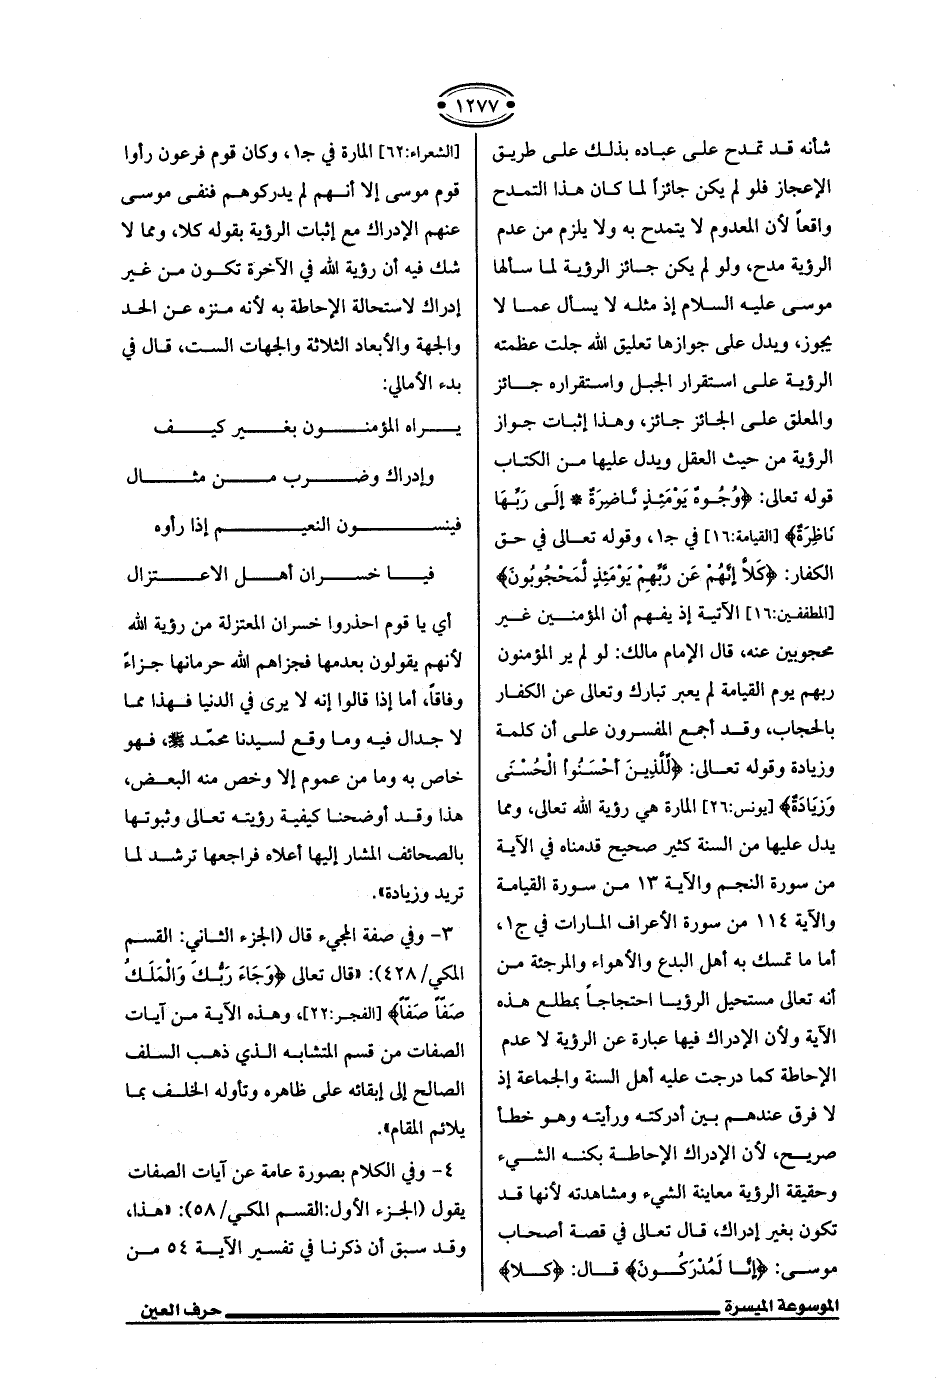 ١٢٧٧
شأنه قد تمدح على عباده بذلك على طريق
الإعجاز فلو لم يكن جائزاً لما كان هذا التمدح
واقعاً لأن المعدوم لا يتمدح به ولا يلزم من عدم
الرؤية مدح، ولو لم يكن جائز الرؤية لما سألها
موسى عليه السلام إذ مثله لا يسأل عما لا
يجوز، ويدل على جوازها تعليق الله جلت عظمته
الرؤية على استقرار الجبل واستقراره جائز
والمعلق على الجائز جائز، وهذا إثبات جواز
الرؤية من حيث العقل ويدل عليها من الكتاب
قوله تعالى: ﴿وُجُوهٌ يَوْمَئِذٍ نَاضِرَةٌ * إِلَى رَبِّهَا
نَاظِرَةٌ﴾ [القيامة:١٦] في ج١، وقوله تعالى في حق
الكفار: ﴿كَلاَّ إِنَّهُمْ عَن رَّبِّهِمْ يَوْمَئِذٍ لَّمَحْجُوبُونَ﴾
[المطففين:١٦] الآتية إذ يفهم أن المؤمنين غير
محجوبين عنه، قال الإمام مالك: لو لم ير المؤمنون
ربهم يوم القيامة لم يعبر تبارك وتعالى عن الكفار
بالحجاب، وقد أجمع المفسرون على أن كلمة
وزيادة وقوله تعالى: ﴿لِّلَّذِينَ أَحْسَنُواْ الْحُسْنَى
وَزِيَادَةٌ﴾ [يونس:٢٦] المارة هي رؤية الله تعالى، ومما
يدل عليها من السنة كثير صحيح قدمناه في الآية
من سورة النجم والآية ١٣ من سورة القيامة
والآية ١١٤ من سورة الأعراف المارات في ج١،
أما ما تمسك به أهل البدع والأهواء والمرجئة من
أنه تعالى مستحيل الرؤيا احتجاجاً بمطلع هذه
الآية ولأن الإدراك فيها عبارة عن الرؤية لا عدم
الإحاطة كما درجت عليه أهل السنة والجماعة إذ
لا فرق عندهم بين أدركته ورأيته وهو خطأ
صريح، لأن الإدراك الإحاطة بكنه الشيء
وحقيقة الرؤية معاينة الشيء ومشاهدته لأنها قد
تكون بغير إدراك، قال تعالى في قصة أصحاب
موسى: ﴿إِنَّا لَمُدْرَكُونَ﴾ قال: ﴿كلا﴾
[الشعراء:٦٢] المارة في ج١، وكان قوم فرعون رأوا
قوم موسى إلا أنهم لم يدركوهم فنفى موسى
عنهم الإدراك مع إثبات الرؤية بقوله كلا، ومما لا
شك فيه أن رؤية الله في الآخرة تكون من غير
إدراك لاستحالة الإحاطة به لأنه منزه عن الحد
والجهة والأبعاد الثلاثة والجهات الست، قال في
بدء الأمالي:
يراه المؤمنون بغير كيف
وإدراك وضرب من مثال
فينسون النعيم إذا رأوه
فيا خسران أهل الاعتزال
أي يا قوم احذروا خسران المعتزلة من رؤية الله
لأنهم يقولون بعدمها فجزاهم الله حرمانها جزاءً
وفاقاً، أما إذا قالوا إنه لا يرى في الدنيا فهذا مما
لا جدال فيه وما وقع لسيدنا محمّد ﷺ، فهو
خاص به وما من عموم إلا وخص منه البعض،
هذا وقد أوضحنا كيفية رؤيته تعالى وثبوتها
بالصحائف المشار إليها أعلاه فراجعها ترشد لما
تريد وزيادة».
٣- وفي صفة المجيء قال (الجزء الثاني: القسم
المكي/٤٢٨): «قال تعالى ﴿وَجَاءَ رَبُّكَ وَالْمَلَكُ
صَفّاً صَفّاً﴾ [الفجر:٢٢]، وهذه الآية من آيات
الصفات من قسم المتشابه الذي ذهب السلف
الصالح إلى إبقائه على ظاهره وتأوله الخلف بما
يلائم المقام».
٤- وفي الكلام بصورة عامة عن آيات الصفات
يقول (الجزء الأول:القسم المكي/٥٨): «هذا،
وقد سبق أن ذكرنا في تفسير الآية ٥٤ من
الموسوعة الميسرة
حرف العين